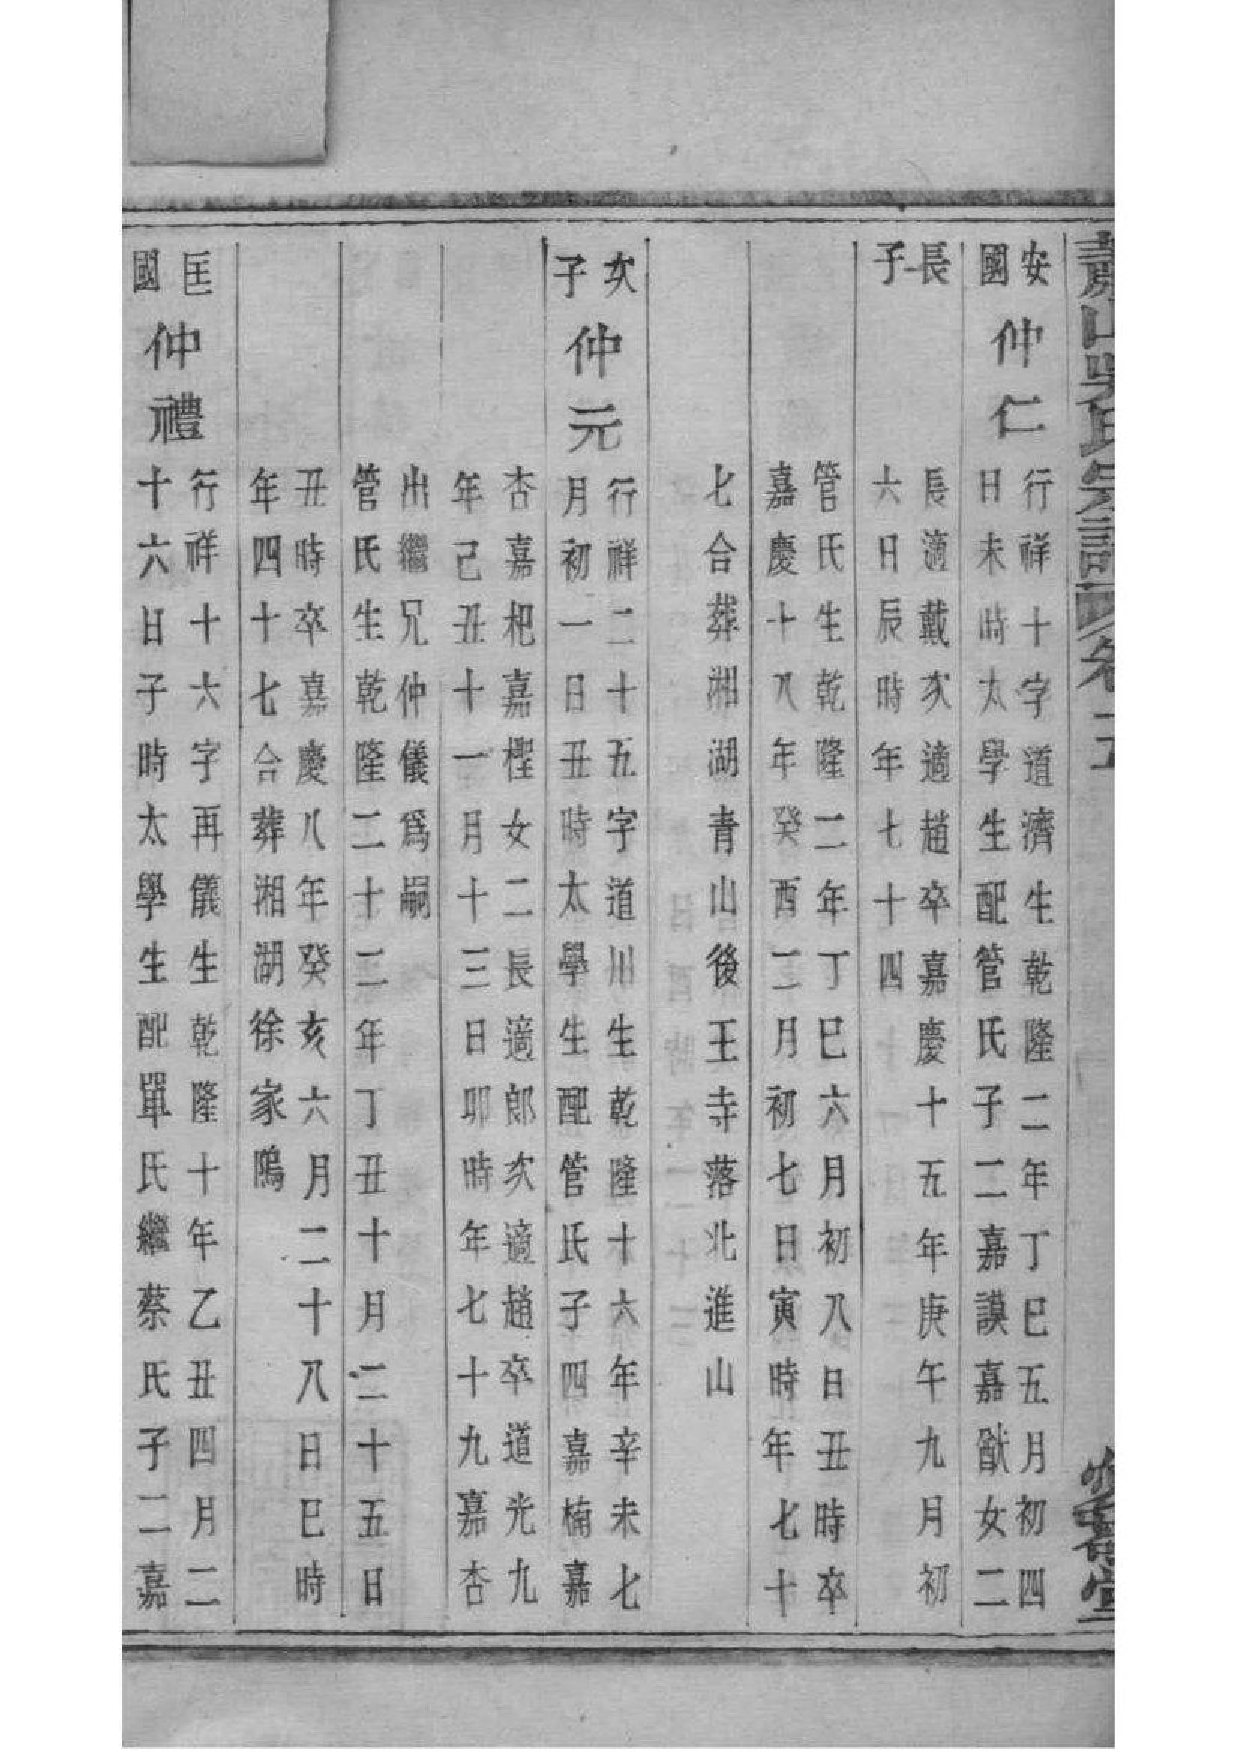 蕭山吳氏宗譜 卷十五
安國
仲仁
行祥十字道濟生乾隆二年丁巳五月初四
日未時太學生配管氏子二嘉謨嘉猷女二
長子
長適戴次適趙卒嘉慶十五年庚午九月初
六日辰時年七十四
管氏生乾隆二年丁巳六月初八日丑時卒
嘉慶十八年癸酉二月初七日寅時年七十
七合葬湘湖青山後王寺落北進山
次子
仲元
行祥二十五字道川生乾隆十六年辛未七
月初一日丑時太學生配管氏子四嘉楠嘉
杏嘉杷嘉檉女二長適郎次適趙卒道光九
年己丑十一月十三日卯時年七十九嘉杏
出繼兄仲儀為嗣
管氏生乾隆二十二年丁丑十月二十五日
丑時卒嘉慶八年癸亥六月二十八日巳時
年四十七合葬湘湖徐家隖
匡國
仲禮
行祥十六字再儀生乾隆十年乙丑四月二
十六日子時太學生配單氏繼蔡氏子二嘉